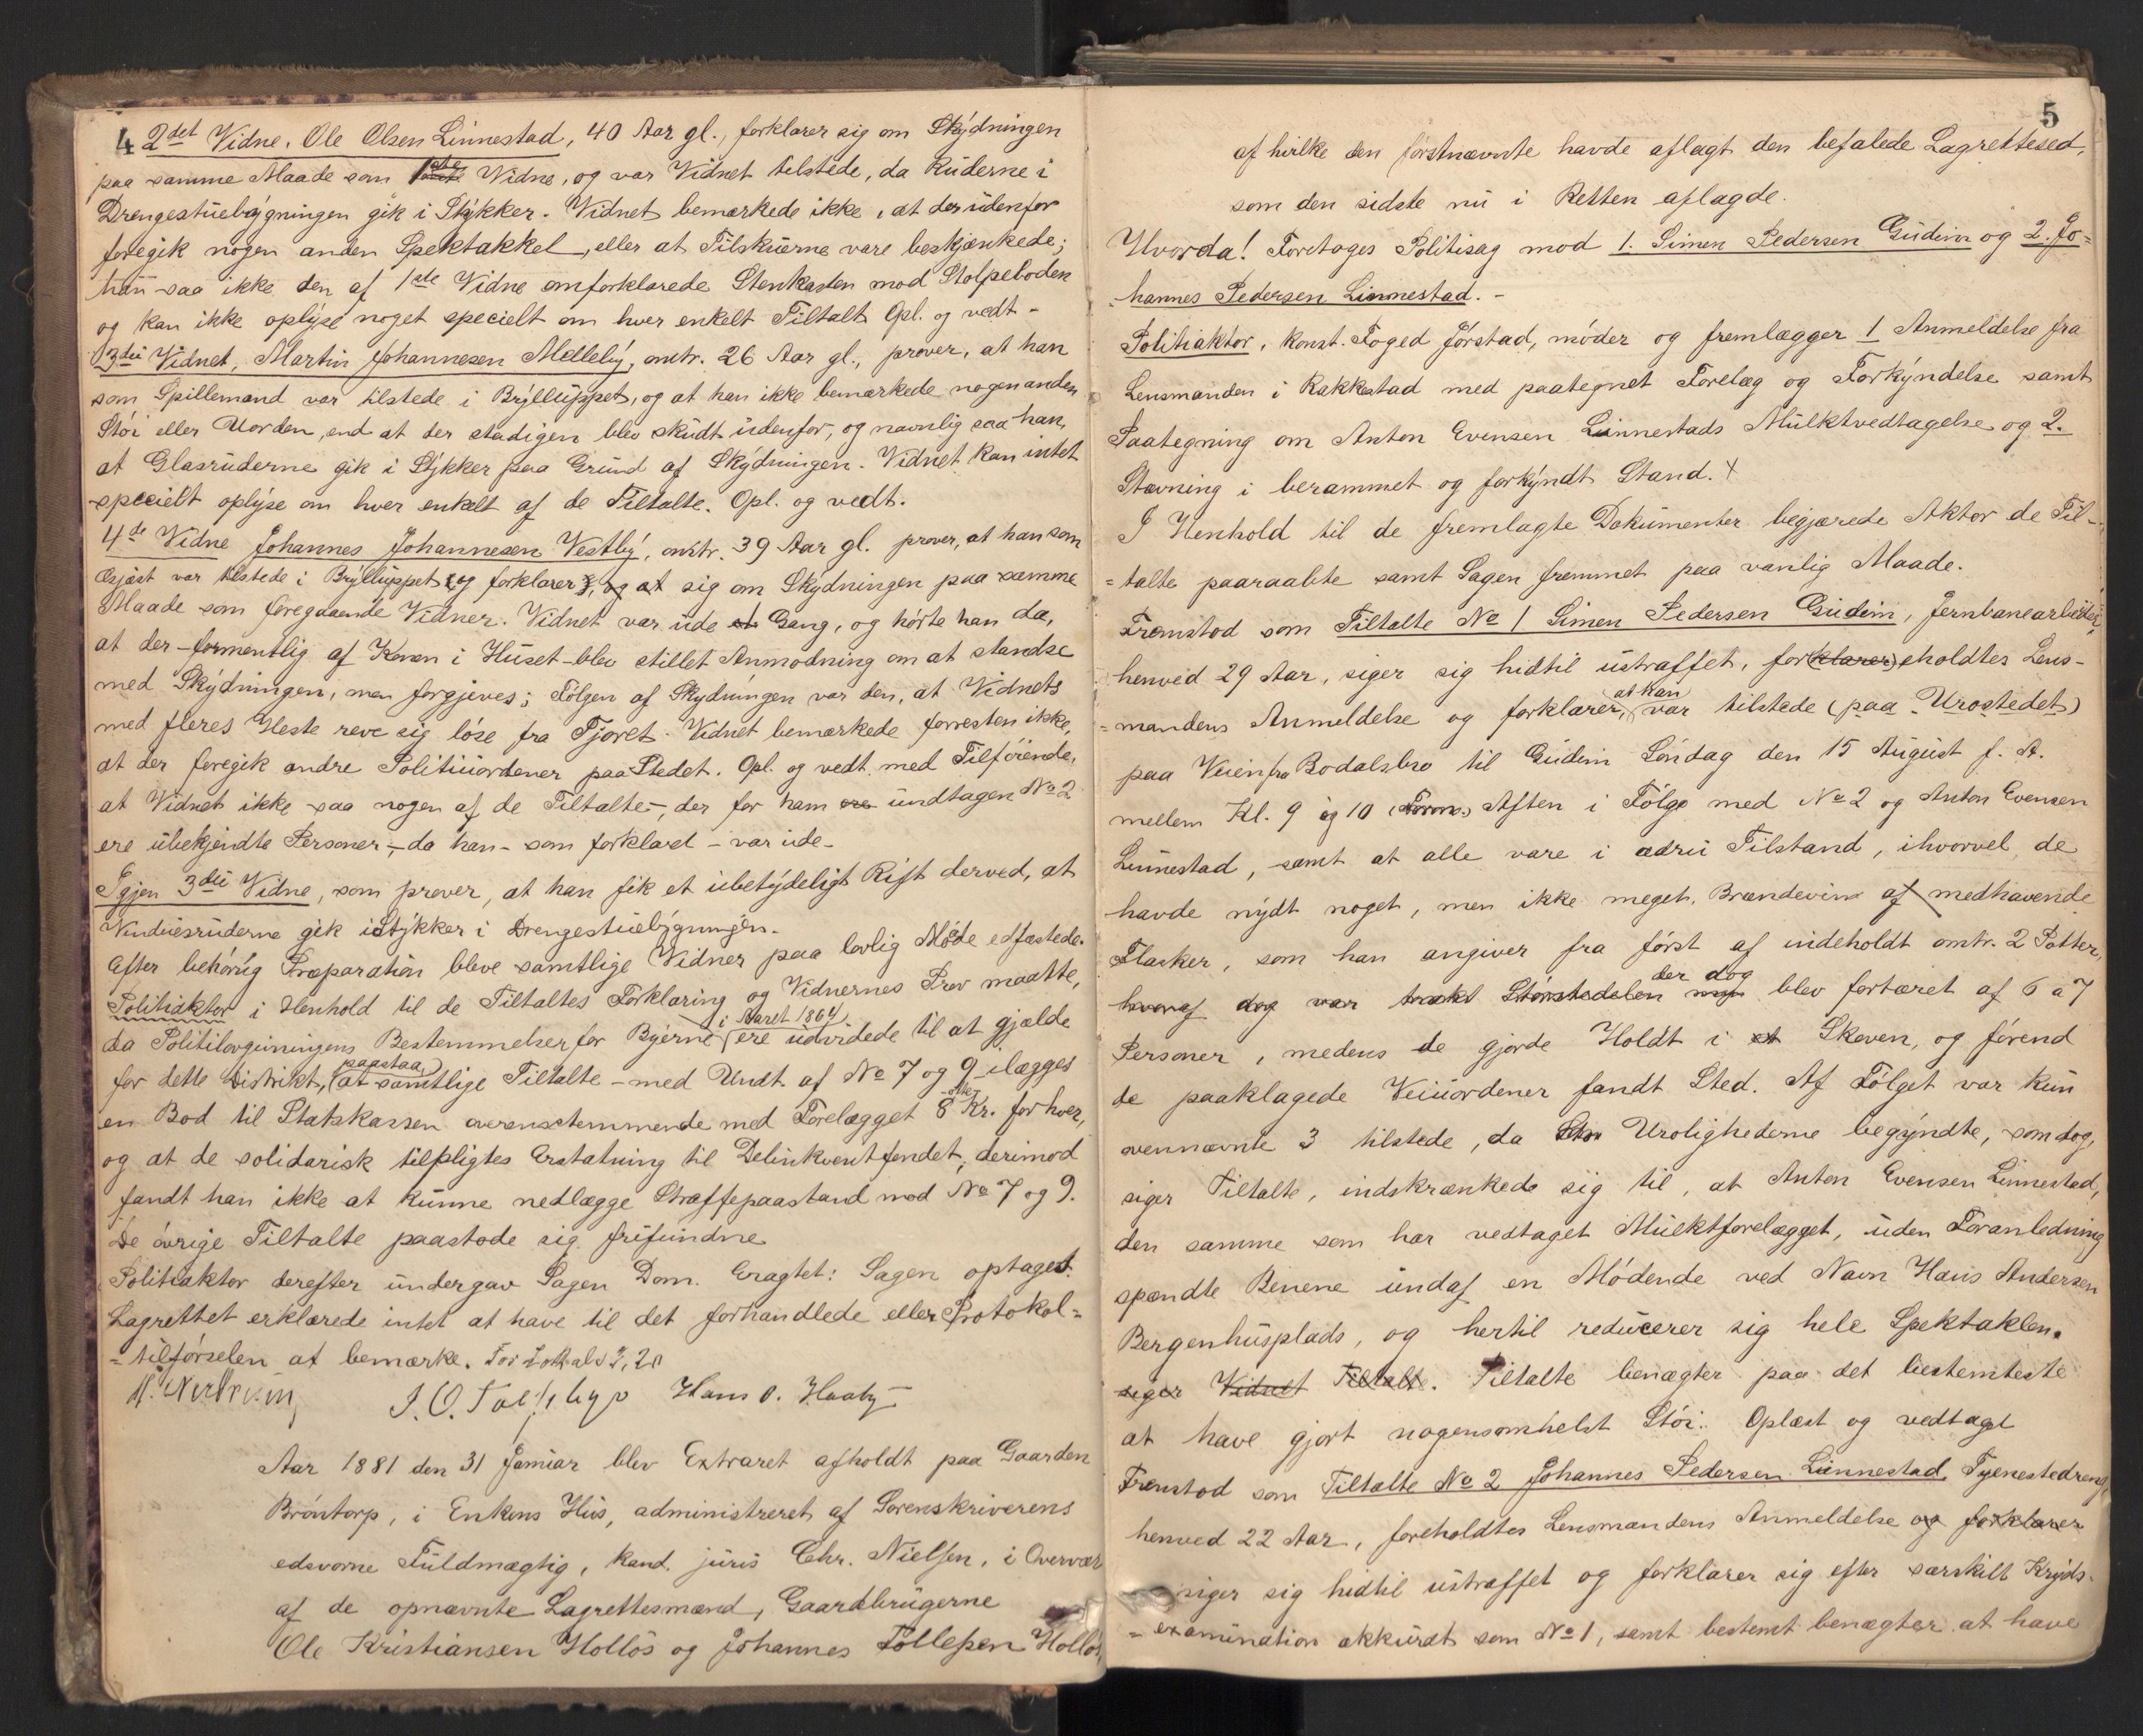 4
2det Vidne, Ole Olsen Linnestad, 40 Aar gl., forklarer sig om Skydningen
paa samme Maade som 1ste Vidne, og var Vidnet tilstede, da Ruderne i
Drengestuebygningen gik i Stykker. Vidnet bemærkede ikke, at der udenfor
foregik nogen anden Spektakkel, eller at Tilskuerne vare beskjænkede;
han saa ikke den af 1ste Vidne omforklarede Stenkasten mod Stolpeboden
og kan ikke oplyse noget specielt om hver enkelt Tiltalt. Opl. og vedt.-
3die Vidnet, Martin Johannesen Melleby, omtr. 26 Aar gl., prover, at han
som Spillemand var tilstede i Brylluppet, og at han ikke bemærkede nogen anden
Støi eller Uorden, end at der stadigen blev skudt udenfor, og navnlig saa han,
at Glasruderne gik i Stykker paa Grund af Skydningen. Vidnet kan intet
specielt oplyse om hver enkelt af de Tiltalte. Opl. og vedt.
4de Vidne Johannes Johannesen Vestby, omtr. 39 Aar gl. prover, at han som
Gjæst var tilstede i Brylluppet (og forklarer), og at sig om Skydningen paa samme
Maade som foregaaende Vidner. Vidnet var ude et Gang, og hørte han da,
at der - formentlig af Konen i Huset - blev stillet Anmodning om at standse
med Skydningen, men forgjæves; Følgen af Skydningen var den, at Vidnets
med fleres Heste reve sig løse fra Tjoret. Vidnet bemærkede forresten ikke,
at der foregik andre Politiuordener paa Stedet. Opl. og vedt. med Tilføiende,
at Vidnet ikke saa nogen af de Tiltalte -, der for ham ere undtagen No 2
ere ubekjendte Personer -, da han - som forklaret - var ude -
Igjen 3die Vidne, som prover, at han fik et ubetydeligt Rift derved, at
Vinduesruderne gik i Stykker i Drengestuebygningen.
Efter behørig Præparation bleve samtlige Vidner paa lovlig Maade edfæstede.
Politiaktor i Henhold til de Tiltaltes Forklaring og Vidnernes Prov maatte,
da Politilovgivningens Bestemmelser for Byerne i Aaret 1864 ere udvidede til at gjælde
for dette Distrikt, paastaa, at samtlige Tiltalte - med Undt. af No 7 og 9 ilægges
en Bod til Statskassen overensstemmende med Forelægget 8 otte Kr. for hver,
og at de solidarisk tilpligtes Erstatning til Delinkventfondet; derimod
fandt han ikke at kunne nedlægge Straffepaastand mod No 7 og 9.
De øvrige Tiltalte paastode sig frifundne
Politiaktor derefter undergav Sagen Dom. Eragtet: Sagen optaget.
Lagrettet erklærede intet at have til det forhandlede eller Protokol=
=tilførselen at bemærke.
Hans O. Haaby
Aar 1881 den 31 Januar blev Extraret afholdt paa Gaarden
Brøntorp, i Enkens Hus, administreret af Sorenskriverens
edsvorne Fuldmægtig, kand. juris Chr. Nielsen, i Overvær
af de opnævnte Lagrettesmænd, Gaardbrugerne
Ole Kristiansen Holløs og Johannes Tollefsen Holløs,
5
af hvilke den førstnævnte havde aflagt den befalede Lagrettesed,
som den sidste nu i Retten aflagde.
Hvorda! Foretoges Politisag mod 1. Simen Pedersen Gudim og 2. Jo=
hannes Pedersen Linnestad. -
Politiaktor, konst. Foged Jørstad, møder og fremlægger 1 Anmeldelse fra
Lensmanden i Rakkestad med paategnet Forelæg og Forkyndelse samt
Paategning om Anton Evensen Linnestads Mulktvedtagelse og 2.
Stævning i berammet og forkyndt Stand.
I Henhold til de fremlagte Dokumenter begjærede Aktor de Til-
=talte paaraabte samt Sagen fremmet paa vanlig Maade.
Fremstod som Tiltalte No 1 Simen Pedersen Gudim, Jernbanearbeider,
henved 29 Aar, siger sig hidtil ustraffet, for(klarer)eholdtes Lens-
=mandens Anmeldelse og forklarer, at han var tilstede (paa Urostedet)
paa Veien fra Bodalsbro til Gudim Søndag den 15 August f. A.
mellem Kl. 9 og 10 (Form.) Aften i Følge med No 2 og Anton Evensen
Linnestad, samt at alle vare i ædru Tilstand, ihvorvel de
havde nydt noget, men ikke meget, Brændevin af medhavende
Flasker, som han angiver fra først af indeholdt omtr. 2 Potter,
hvoraf dog var Størstedelen der dog blev fortæret af 6 a 7
Personer, medens de gjorde Holdt i et Skoven, og førend
de paaklagede Veiuordener fandt Sted. Af Følget var kun
ovennævnte 3 tilstede, da Urolighederne begyndte, som dog,
siger Tiltalte, indskrænkede sig til, at Anton Evensen Linnestad,
den samme som har vedtaget Mulktforelægget, uden Foranledning
spændte Benene undaf en Mødende ved Navn Hans Andersen
Bergenhusplads, og hertil reducerer sig hele Spektaklen.
siger Vidnet Tiltalt. Tiltalte benægter paa det bestemteste
at have gjort nogensomhelst Støi. Oplæst og vedtaget
Fremstod som Tiltalte No 2 Johannes Pedersen Linnestad, Tjenestedreng,
henved 22 Aar, foreholdtes Lensmandens Anmeldelse og forklarer
siger sig hidtil ustraffet og forklarer sig efter særskilt Kryds-
=examination akkurat som No 1, samt bestemt benægter at have